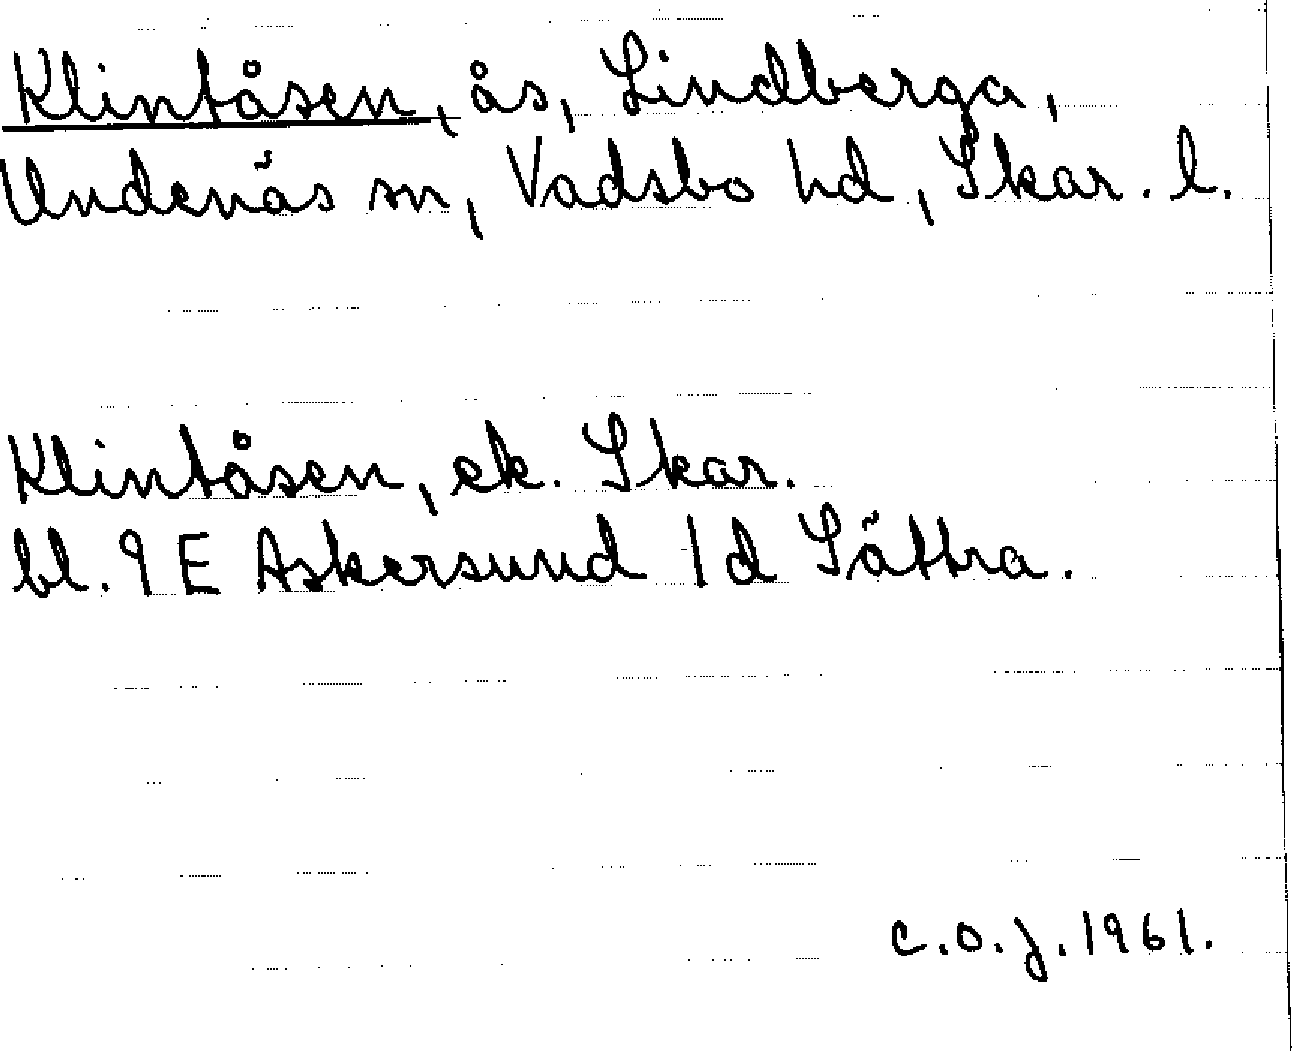 Klintåsen, ås, Lindberga,
Undenäs sn, Vadsbo hd, Skar. l.
Klintåsen, ek. Skar.
bl. 9 E Askersund 1 d Sätra.
C.O.J. 1961.